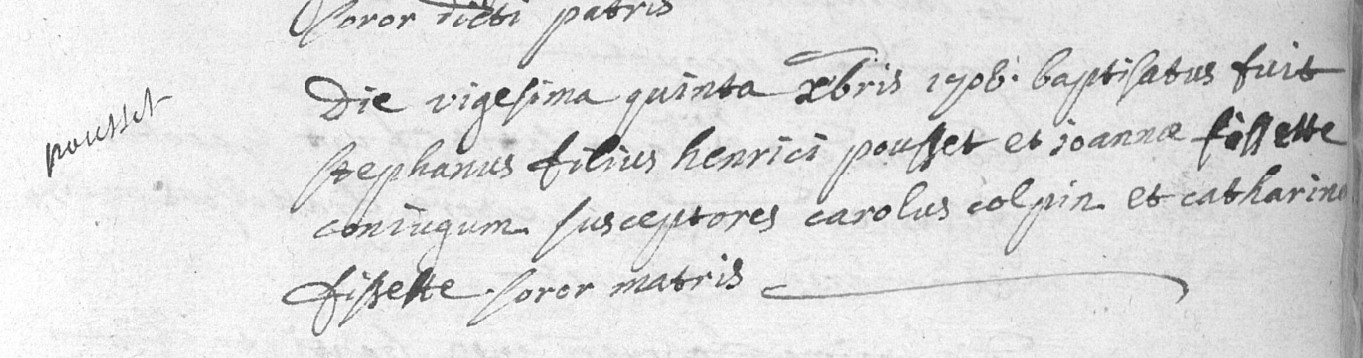 soror dicti patris
pousset
Die vigesima quinta xbris 1708. baptisatus fuit
stephanus filius henrici pousset et ioannæ fissette
coniugum. susceptores carolus colpin et catharina
fissette soror matris